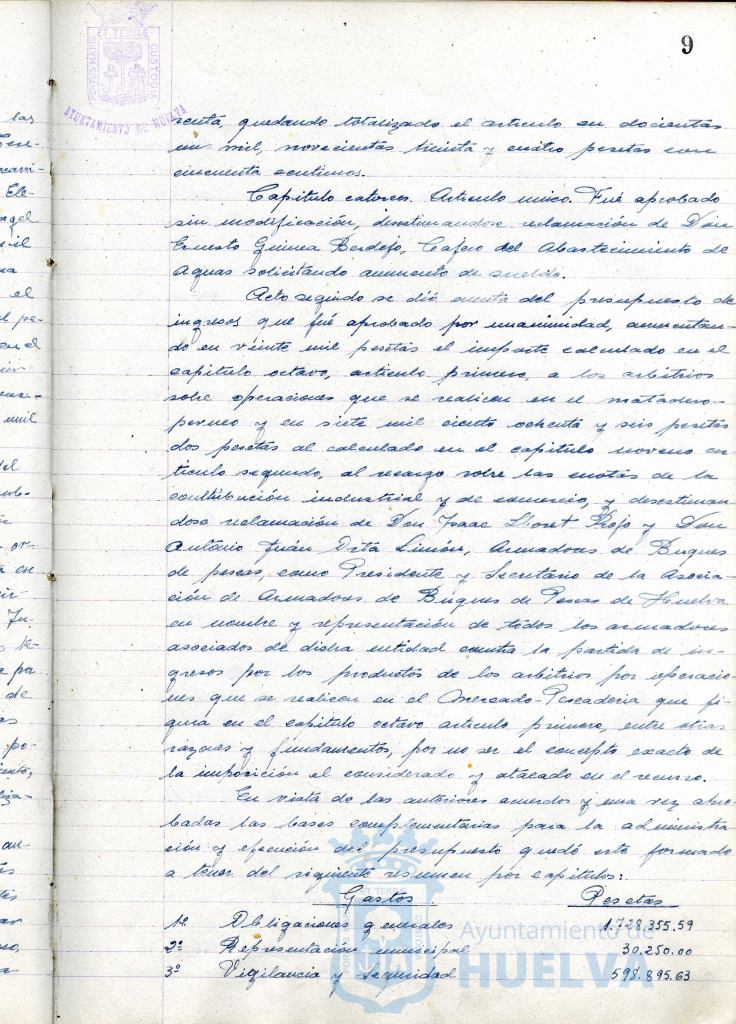 9
PORTUS MARIS ET TERRÆ CUSTODIA
AYUNTAMIENTO DE HUELVA
renta, quedando totalizado el artículo en docientas
un mil, novecientas treinta y cuatro pesetas con
cincuenta centimos.
Capitulo catorce. Artículo unico. Fué aprobado
sin modificación, desestimandose reclamación de Don
Ernesto Guinea Berdejo, Cajero del Abastecimiento de
Aguas solicitando aumento de sueldo.
Acto seguido se dió cuenta del presupuesto de
ingresos que fué aprobado por unanimidad, aumentan-
do en veinte mil pesetas el importe calculado en el
capitulo octavo, artículo primero, a los arbitrios
sobre operaciones que se realicen en el matadero-
porcino y en siete mil ciento ochenta y seis pesetas
dos pesetas al calculado en el capitulo noveno ar-
tículo segundo, al recargo sobre las cuotas de la
contribución industrial y de comercio, y desestiman
dose reclamación de Don Isaac Lloret y Don
Antonio Juán Orta Limón, Armadores de Buques
de pescas, como Presidente y Secretario de la Asocia-
ción de Armadores de Buques de Pescas de Huelva
en nombre y representación de todos los armadores
asociados de dicha entidad contra la partida de in-
gresos por los productos de los arbitrios por operacio-
nes que se realicen en el Mercado-Pescaderia que fi-
gura en el capitulo octavo articulo primero, entre otras
razones y fundamentos, por no ser el concepto exacto de
la imposición el considerado y atacado en el recurso.
En vista de los anteriores acuerdos y una vez apro
badas las bases complementarias para la administra
ción y ejecución del presupuesto quedó este formado
a tenor del siguiente resumen por capitulos:
Gastos Pesetas
1º Obligaciones generales 1.728.355.59
2º Representación municipal 30.250.00
3º Vigilancia y Seguridad 598.895.63
Ayuntamiento de
HUELVA